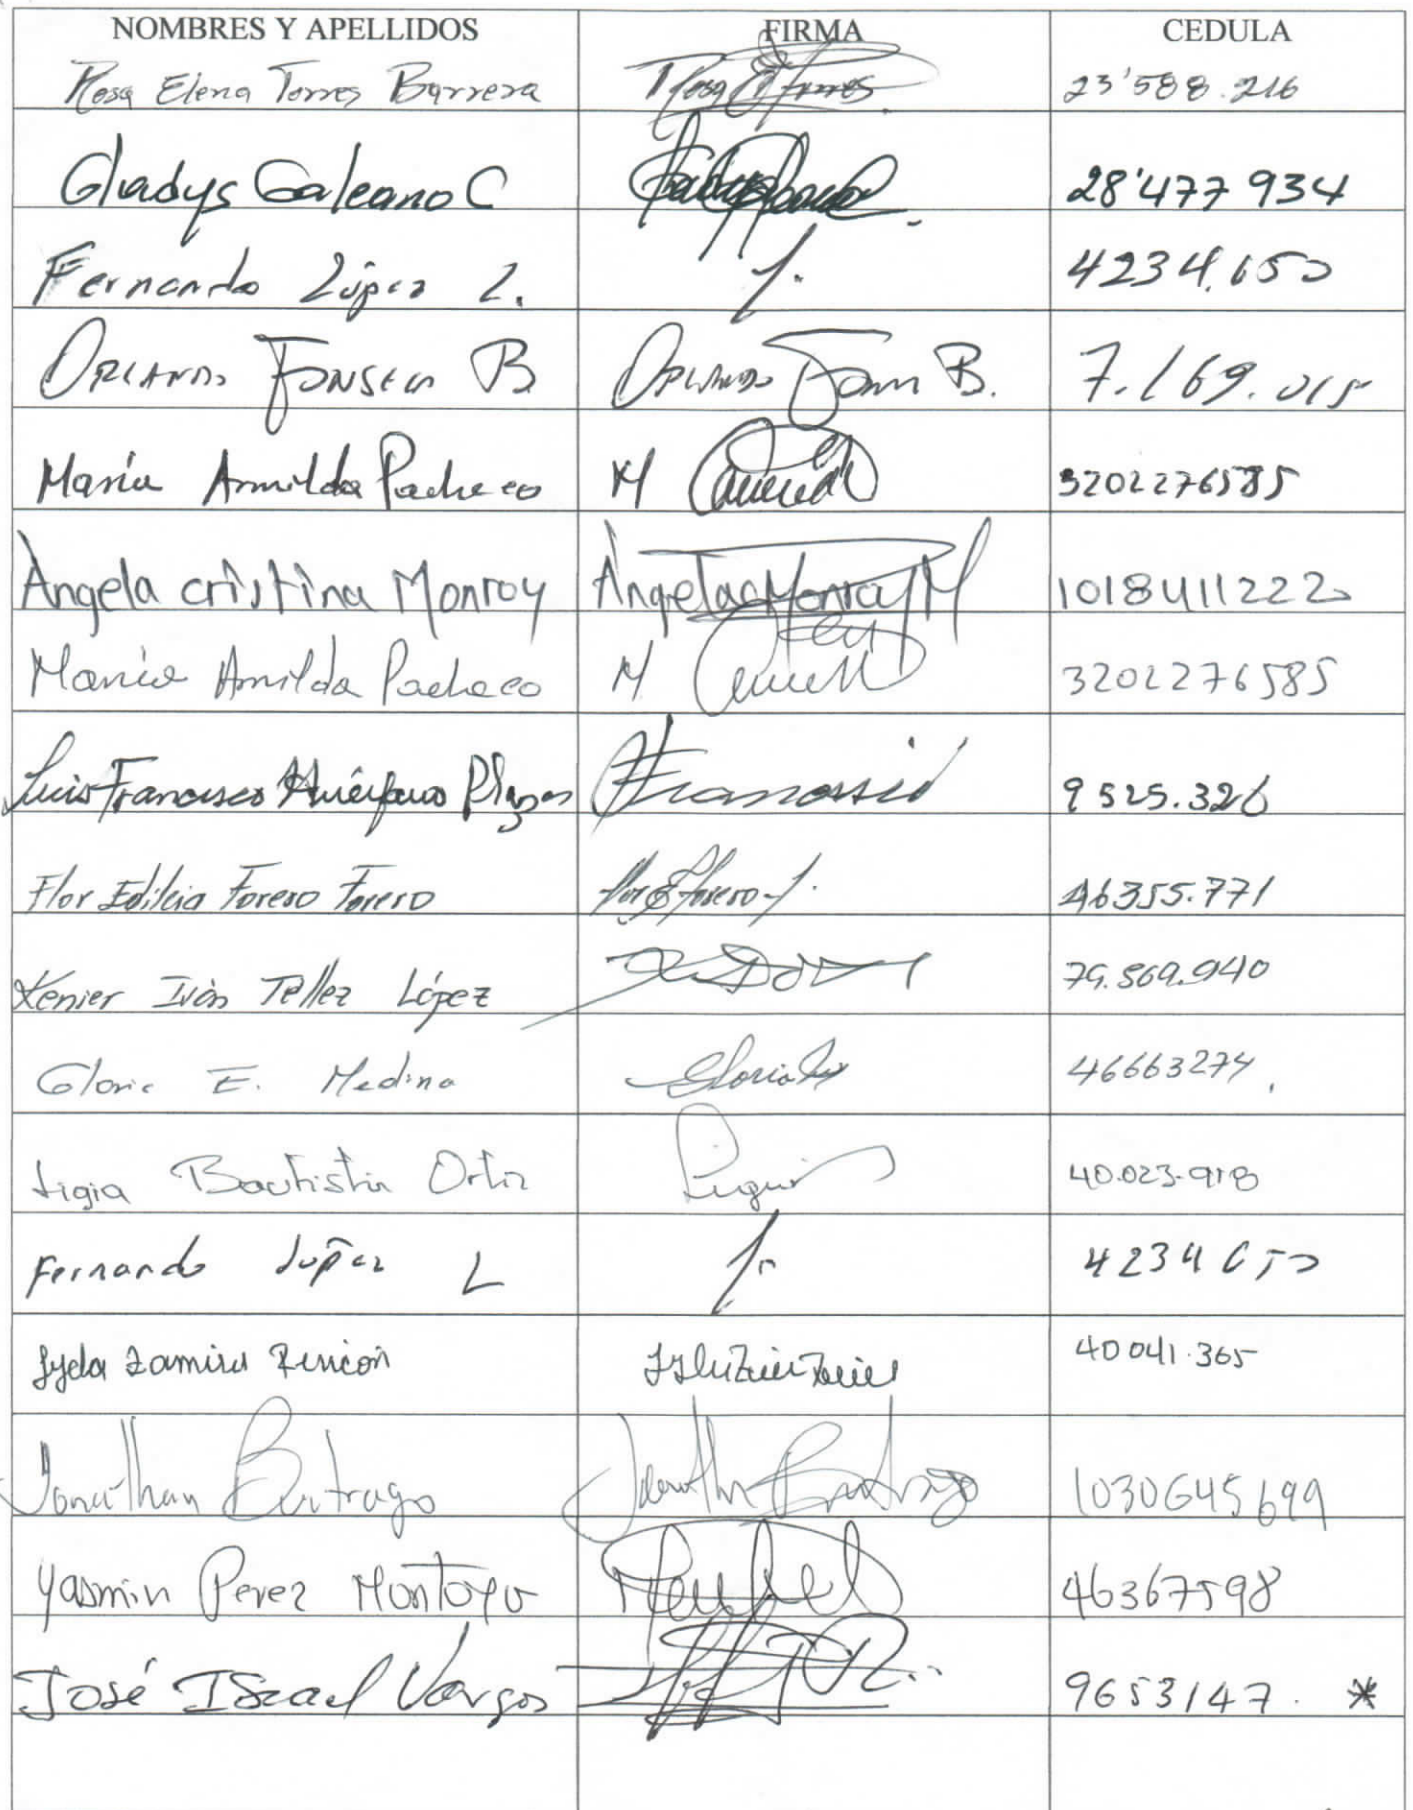 NOMBRES Y APELLIDOS FIRMA CEDULA
Rosa Elena Torres Barrera Rosa E Torres 23'588.216
Gladys Galeano C 28'477 934
Fernando López L. 4234.650
Orlando Fonseca B Orlando B. 7.169.015
María Armilda Pacheco M 3202276585
Angela cristina Monroy Angela Monroy M 1018411222
María Armilda Pacheco M 3202276585
Luis Francisco Huérfano Plazas 9525.326
Flor Edilcia Forero Forero Flor E Forero F. 46355.771
Xenier Iván Tellez López 79.569.940
Gloria E. Medina Gloria 46663274.
Ligia Bautista Ortiz Ligia 40.023.918
Fernando López L 4234650
Lyda Zamira Rincón 40041.365
Jonathan Buitrago Jonathan Buitrago 1030645699
Yasmin Perez Montoya 46367598
José Israel Vargas 9653147. *